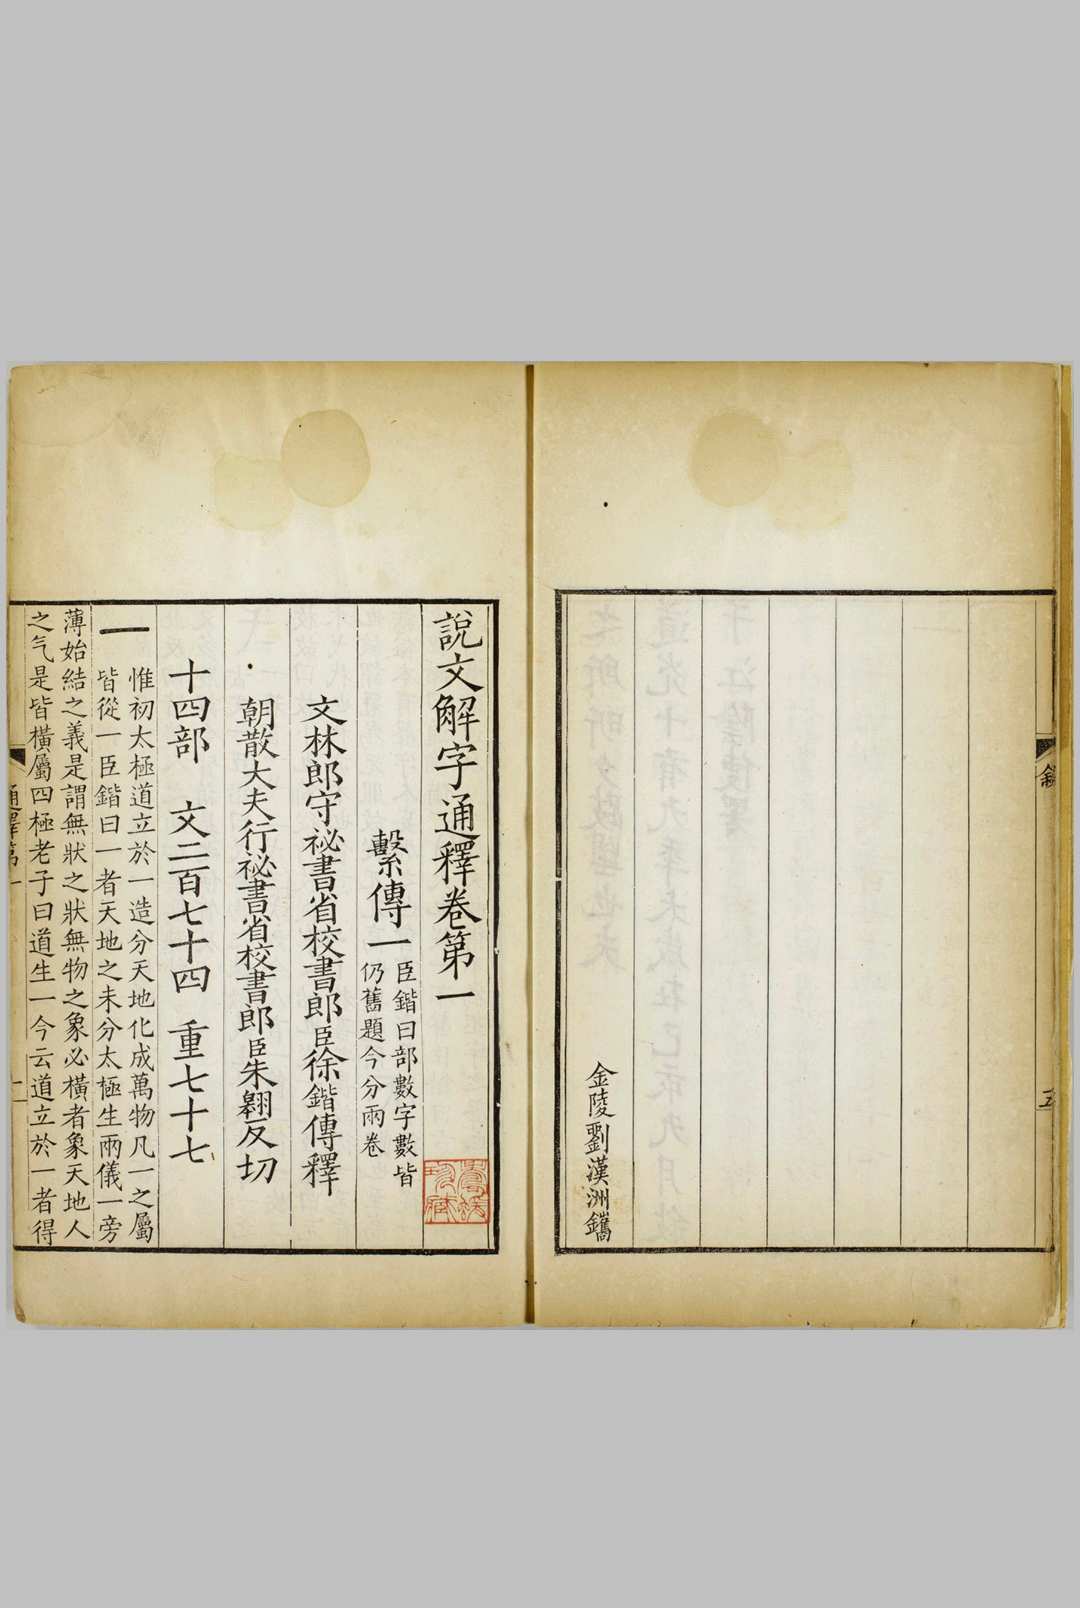 敘
五
金陵劉漢洲鐫
說文解字通釋卷第一
繫傳一
臣鍇曰部數字數皆
仍舊題今分兩卷
文林郎守祕書省校書郎臣徐鍇傳釋
朝散大夫行祕書省校書郎臣朱翱反切
十四部 文二百七十四 重七十七
一
惟初太極道立於一造分天地化成萬物凡一之屬
皆從一臣鍇曰一者天地之未分太極生兩儀一旁
薄始結之義是謂無狀之狀無物之象必橫者象天地人
之气是皆橫屬四極老子曰道生一今云道立於一者得
通釋第一
一